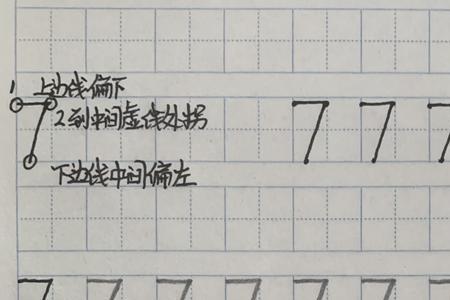 1 上边线偏下
2到中间虚线处拐
下边线中间偏左
7 7 7 7
7 7 7 7 7 7 7